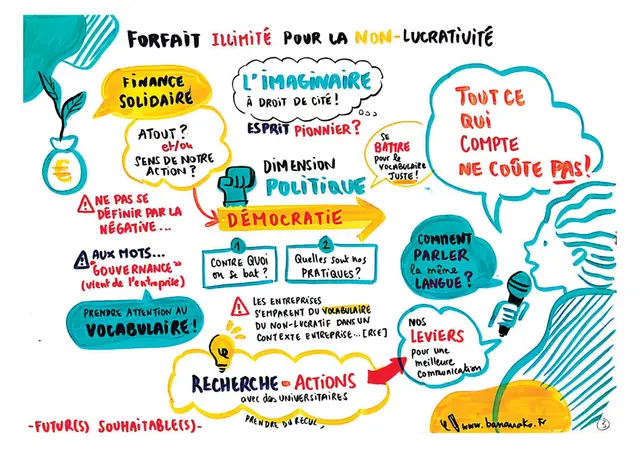 FORFAIT ILLIMITÉ POUR LA NON-LUCRATIVITÉ
FINANCE
SOLIDAIRE
ATOUT?
et/ou
SENS DE NOTRE
ACTION?
L'IMAGINAIRE
À DROIT DE CITÉ!
ESPRIT PIONNIER?
SE
BATTRE
pour le
VOCABULAIRE
JUSTE!
TOUT CE
QUI
COMPTE
NE COÛTE PAS!
€
DIMENSION
POLITIQUE
DÉMOCRATIE
⚠ NE PAS SE
DÉFINIR PAR LA
NÉGATIVE...
⚠ AUX MOTS...
"GOUVERNANCE"
(vient de l'entreprise)
PRENDRE ATTENTION AU
VOCABULAIRE!
1
CONTRE QUOI
on se bat?
2
Quelles sont nos
PRATIQUES?
COMMENT
PARLER
la même
LANGUE?
⚠ LES ENTREPRISES
S'EMPARENT DU VOCABULAIRE
DU NON-LUCRATIF DANS UN
CONTEXTE ENTREPRISE...[RSE]
NOS
LEVIERS
pour une
meilleure
communication
RECHERCHE-ACTIONS
avec des UNIVERSITAIRES
PRENDRE DU RECUL,
-FUTUR(S) SOUHAITABLE(S)-
www.bananako.fr
3